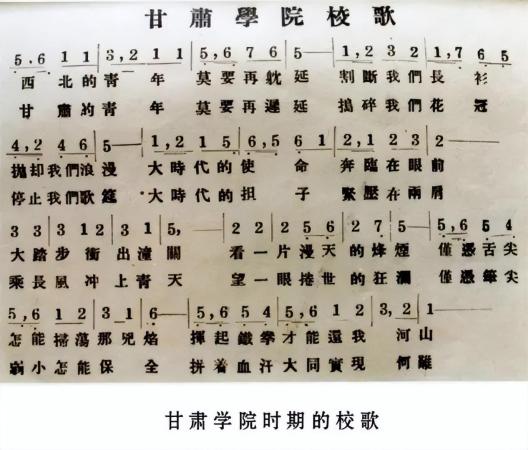 甘肅學院校歌
5,6 1 1 | 3,2 1 1 | 5,6 7 6 | 5— | 1,2 3 2 | 1,7 6 5
西北的青年 莫要再躭延 割斷我們長衫
甘肅的青年 莫要再遲延 搗碎我們花冠
4,2 4 6 | 5— | 1,2 1 5 | 6,5 6 1 | 2,1 2 3 | 2—
拋却我們浪漫 大時代的使命 奔臨在眼前
停止我們歌筵 大時代的担子 緊壓在兩肩
3 3 | 3 1 2 3 | 1 5, | 5,— | 2 2 | 2 5 6 | 2 7 | 5— | 5,6 5 4
大踏步衝出潼關 看一片漫天的烽煙 僅憑舌尖
乘長風冲上青天 望一眼捲世的狂瀾 僅憑筆尖
5,6 1 2 | 3 1 | 6— | 5,6 4 5 | 6,5 1 2 | 3,2 | 1—
怎能掃蕩那兇焰 揮起鐵拳才能還我河山
弱小怎能保全 拚着血汗大同實現何難
甘肃学院时期的校歌